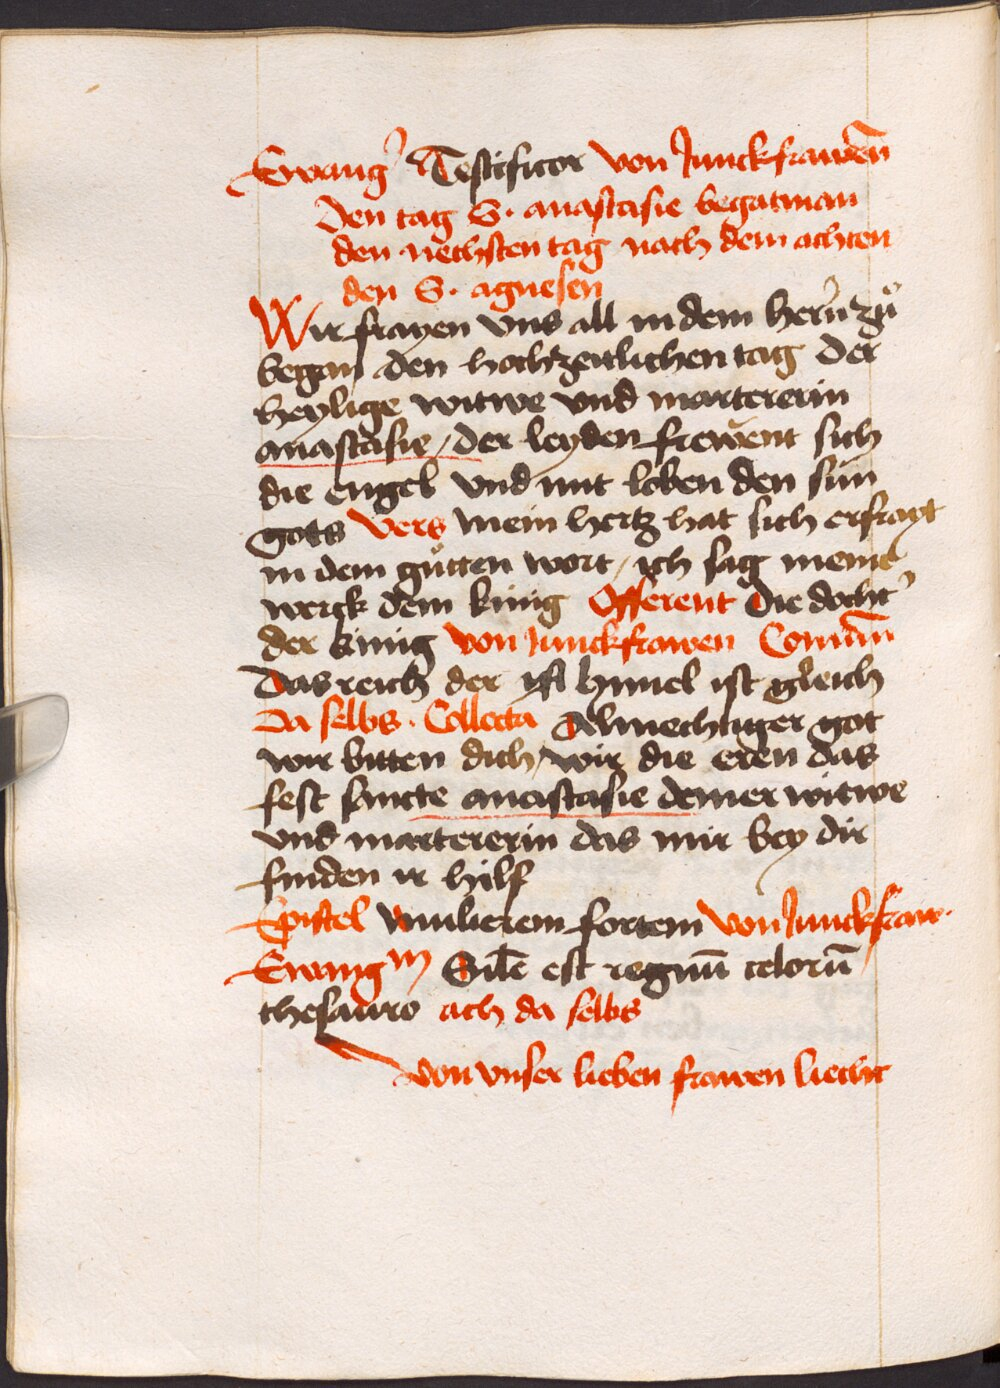 Ewang' Testificor von Junckfrawen̄
Den tag S. anastasie begatman
den nechsten tag nach dem achten
den S. agnesen
Wir frayen vns all in dem hern̄ zů
began den hochzeitlichen tag der
heylige witwe vnd martererin
anastasie / der leyden frewent sich
die engel vnd mit loben den sun
gots Vers Mein hertz hat sich erfrayt
in dem gůtten wort / ich sag meine
werck dem king Offerent Die docht'
der king von junckfrawen Comūn
Das reich der himel ist gleich
Da selbs. Collecta Almechtiger got
wir bitten dich / wir die eren das
fest sancte anastasie deiner witwe
vnd martererin das mir bey dir
finden ir hilf
Epistel Mulierem fortem von Junckfraw.
Ewangm Sil̄e est regnū celorū
thesauro ach da selbs
von vnser lieben frawen liecht